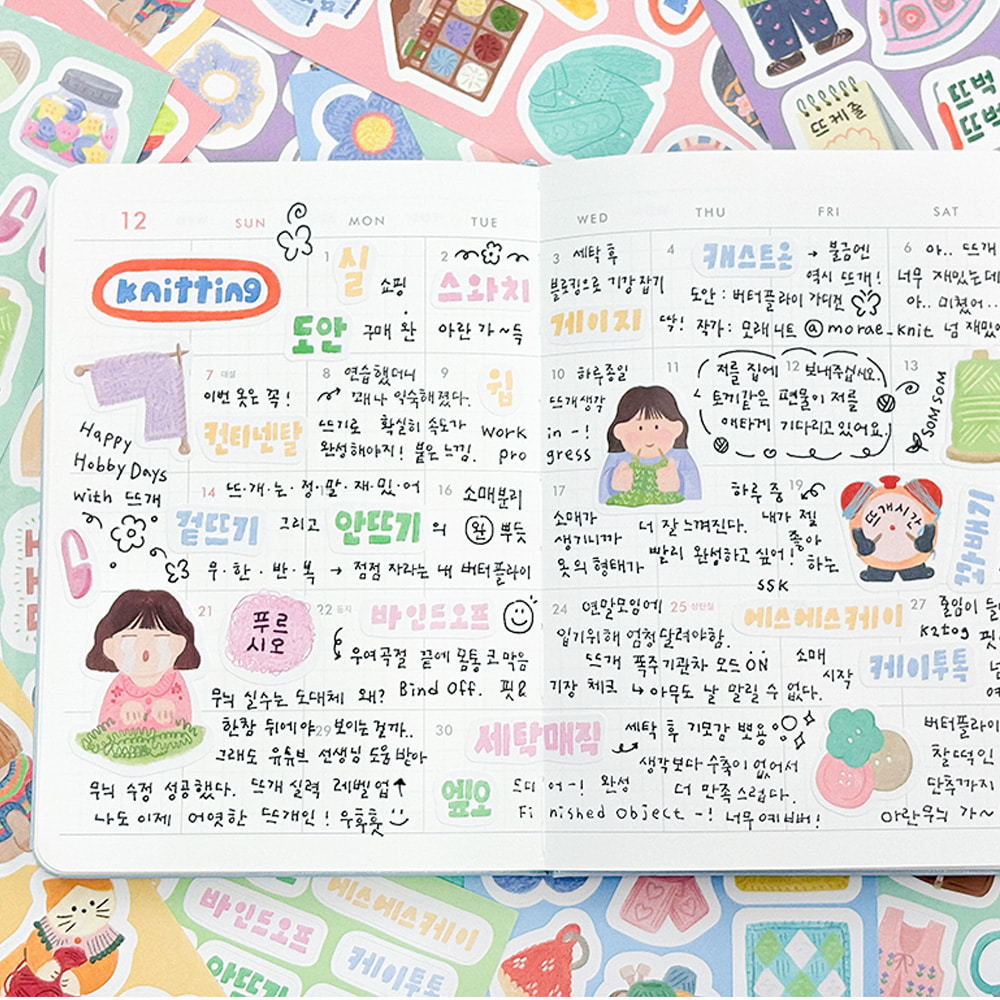 뜨케줄
뜨벅
뜨벅
12 SUN MON TUE WED THU FRI SAT
knitting
1 실 쇼핑
도안 구매 완
2 스와치
아란 가~득
3 세탁 후
블로킹으로 기강 잡기
게이지 딱!
4 캐스트온 → 불금엔
역시 뜨개!
도안: 버터플라이 가디건
작가: 모래니트 @morae_knit 넘 재밌
6 아.. 뜨개
너무 재밌는데
아.. 미쳤어...
Happy
Hobby Days
with 뜨개
7 대설
이번 옷은 꼭!
컨티넨탈
8 연습했더니
꽤나 익숙해졌다.
뜨기로 확실히 속도가
완성해야지! 붙은 느낌.
9 윕
work in -!
progress
10 하루종일
뜨개생각
11
저를 집에 12 보내주십시오.
토끼같은 편물이 저를
애타게 기다리고 있어요.
13
SOM SOM
14 뜨·개·는·정·말·재·밌·어
겉뜨기 그리고 안뜨기의
무·한·반·복 → 점점 자라는 내 버터플라이
16 소매분리
완 뿌듯
17
소매가
생기니까
옷의 형태가
더 잘 느껴진다.
빨리 완성하고 싶어!
하루 중 19
내가 젤
좋아
하는
뜨개시간
SSK
21
푸르
시오
22 동지 바인드오프
우여곡절 끝에 몸통 코막음
Bind Off. 핏&
무늬 실수는 도대체 왜?
24 연말모임에
입기위해 엄청달려야함.
뜨개 폭주기관차 모드 ON
기장 체크 ↳ 아무도 날 말릴 수 없다.
25 성탄절
에스에스케이
소매
시작
케이투톡
27
k2tog
한참 뒤에야 보이는걸까..
29
그래도 유튜브 선생님 도움받아
무늬 수정 성공했다. 뜨개 실력 레벨업↑
나도 이제 어엿한 뜨개인! 우훗훗
30 세탁매직
세탁 후 기모감 뽀용
생각보다 수축이 없어서
더 만족스럽다.
엪오 드디어-! 완성
Finished Object -! 너무예뻐!
버터플라이
찰떡인
단추까지
아란무늬 가~
바인드오프
에스에스케이
안뜨기
케이투톡